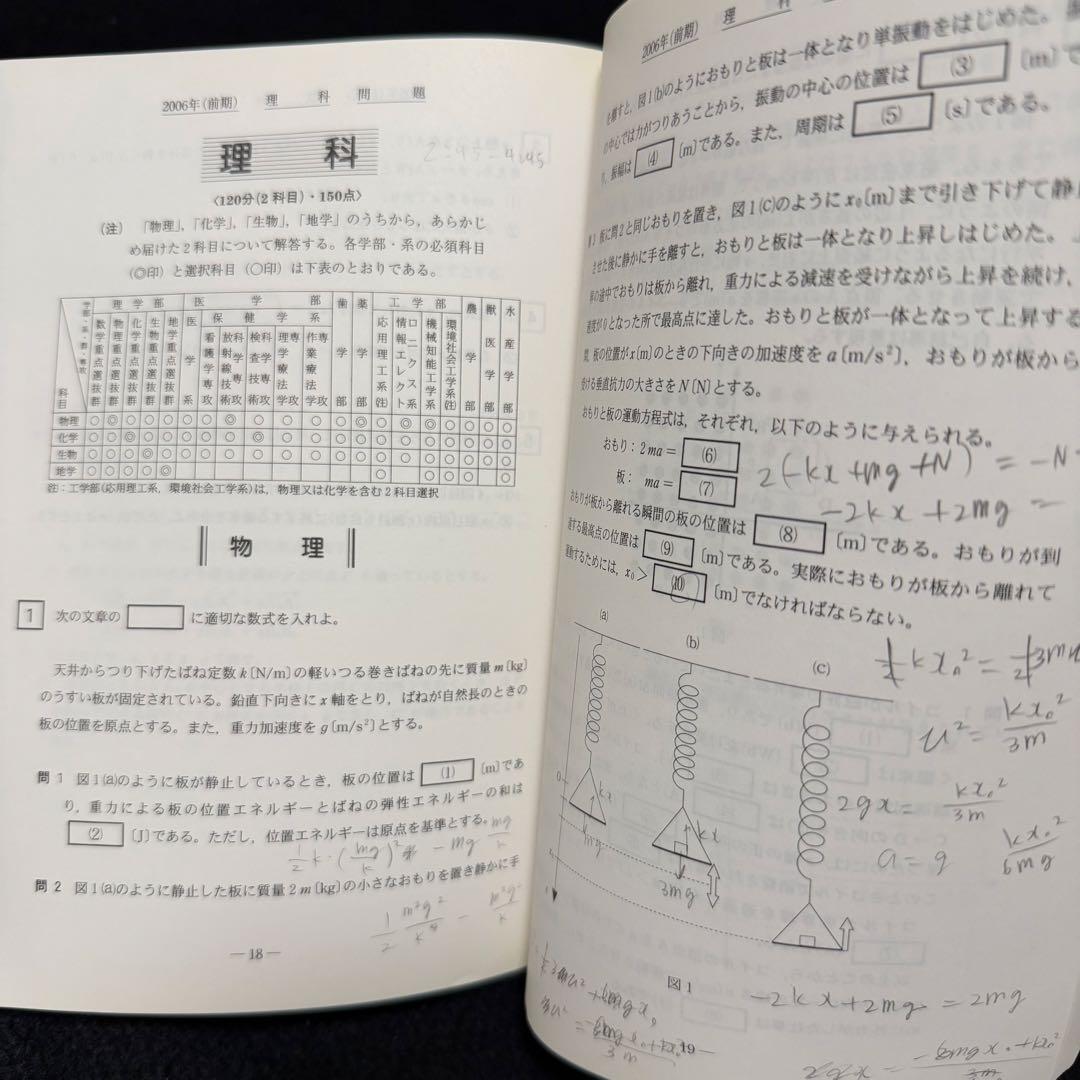 2006年(前期) 理 科 問 題
理 科
〈120分(2科目)・150点〉
(注) 「物理」,「化学」,「生物」,「地学」のうちから、あらかじ
め届けた2科目について解答する。各学部・系の必須科目
(◎印)と選択科目(○印)は下表のとおりである。
学部・系・群・専攻
科目
理学部
数学重点選抜群
物理重点選抜群
化学重点選抜群
生物重点選抜群
地学重点選抜群
医学部
医学系
保健学系
看護学専攻
放射線技術
検査技術
理学療法学
作業療法学
歯学部
薬学部
工学部
応用理工系(注)
情報エレクトロニクス系
機械知能工学系
環境社会工学系(注)
農学部
獣医学部
水産学部
物理
化学
生物
地学
注:工学部(応用理工系,環境社会工学系)は、物理又は化学を含む2科目選択
物 理
1 次の文章の に適切な数式を入れよ。
天井からつり下げたばね定数k〔N/m〕の軽いつる巻きばねの先に質量m〔kg〕
のうすい板が固定されている。鉛直下向きにx軸をとり、ばねが自然長のときの
板の位置を原点とする。また、重力加速度をg〔m/s²〕とする。
問1 図1(a)のように板が静止しているとき、板の位置は (1) 〔m〕であ
り、重力による板の位置エネルギーとばねの弾性エネルギーの和は
(2) 〔J〕である。ただし、位置エネルギーは原点を基準とする。
1/2 k・(mg/k)² − mg mg/k
問2 図1(a)のように静止した板に質量2m〔kg〕の小さなおもりを置き静かに手
1/2 m²g²/k − m²g²/k
― 18 ―
2006年(前期) 理 科
を離すと、図1(b)のようにおもりと板は一体となり単振動をはじめた。
の中心では力がつりあうことから、振動の中心の位置は (3) 〔m〕で
り、振幅は (4) 〔m〕である。また、周期は (5) 〔s〕である。
3 板に問2と同じおもりを置き、図1(c)のようにx₀〔m〕まで引き下げて静
させた後に静かに手を離すと、おもりと板は一体となり上昇しはじめた。
昇の途中でおもりは板から離れ、重力による減速を受けながら上昇を続け、
速度が0となった所で最高点に達した。おもりと板が一体となって上昇する
間、板の位置がx〔m〕のときの下向きの加速度をa〔m/s²〕、おもりが板から
受ける垂直抗力の大きさをN〔N〕とする。
おもりと板の運動方程式は、それぞれ、以下のように与えられる。
おもり:2ma= (6)
板: ma= (7)
2(−kx+mg+N) = −N
−2kx +2mg =
おもりが板から離れる瞬間の板の位置は (8) 〔m〕である。おもりが到
達する最高点の位置は (9) 〔m〕である。実際におもりが板から離れて
運動するためには、x₀> (10) 〔m〕でなければならない。
(a)
(b)
(c)
1/2 kx₀² = 1/2 3mu
u² = kx₀²/3m
2gx = kx₀²/3m
a = g
kx₀²/6mg
0
kx
mg
kx
3mg
図1
−2kx+2mg = 2mg
19 ―